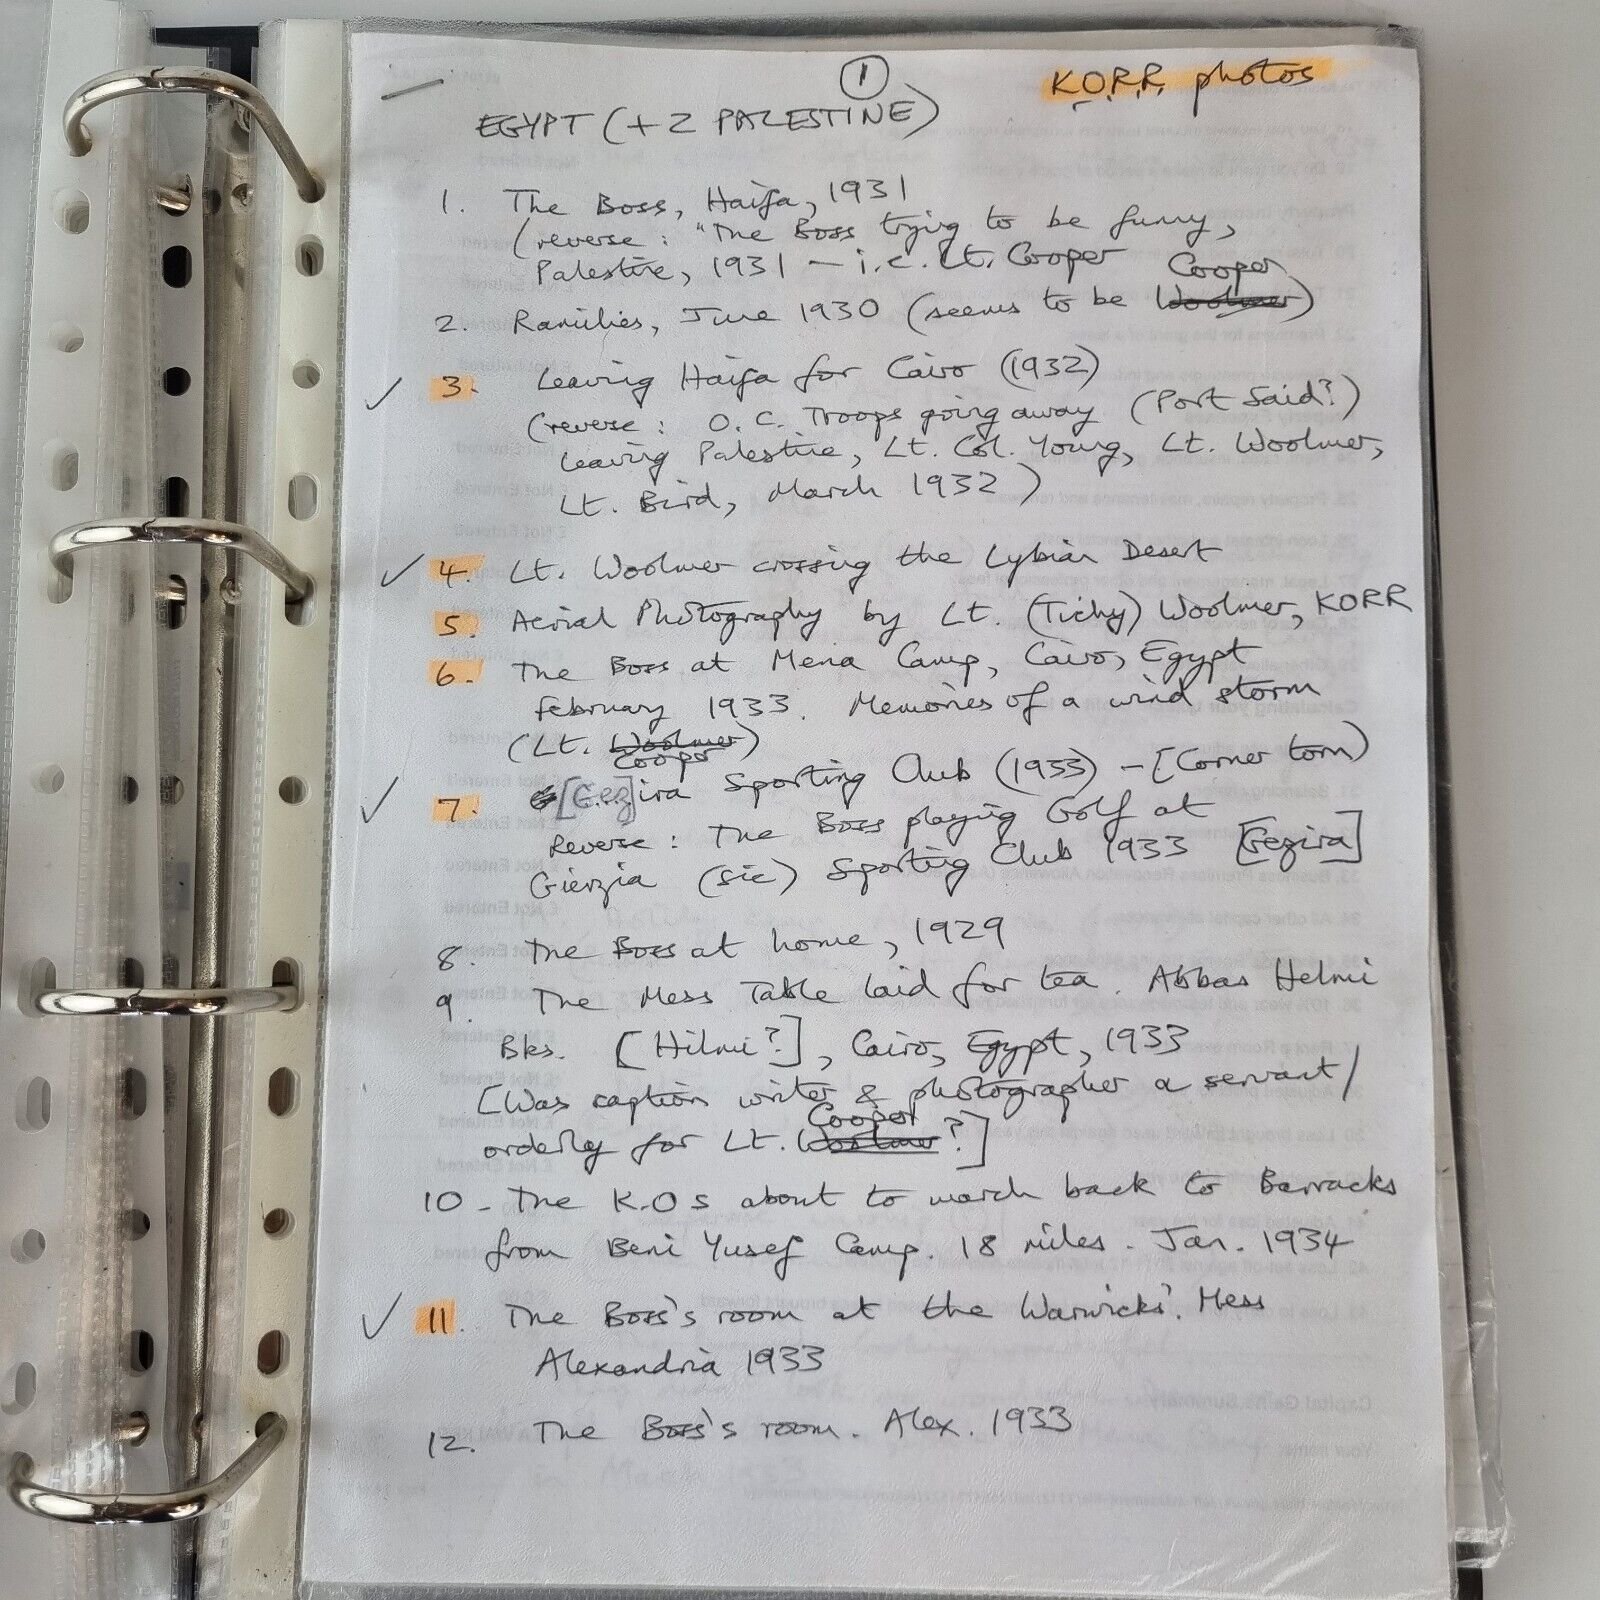 ①
K.O.R.R. photos
EGYPT (+ 2 PALESTINE)
1. The Boss, Haifa, 1931
(reverse: "The Boss trying to be funny,
Palestine, 1931 – i.e. Lt. Cooper
2. Ramilies, June 1930 (seems to be Woolmer Cooper)
3. Leaving Haifa for Cairo (1932)
(reverse: O.C. Troops going away (Port Said?)
leaving Palestine, Lt. Col. Young, Lt. Woolmer,
Lt. Bird, March 1932)
4. Lt. Woolmer crossing the Lybian Desert
5. Aerial Photography by Lt. (Tichy) Woolmer, KORR
6. The Boss at Mena Camp, Cairo, Egypt
February 1933. Memories of a wind storm
(Lt. Woolmer Cooper)
7. G [Gez]ira Sporting Club (1933) – [Corner torn)
Reverse: The Boss playing Golf at
Gierzia (sic) Sporting Club 1933 [Gezira]
8. The Boss at home, 1929
9. The Mess Table laid for tea. Abbas Helmi
Bks. [Hilmi?], Cairo, Egypt, 1933
[Was caption writer & photographer a servant/
orderly for Lt. Woolmer Cooper?]
10 – The K.O s about to march back to Barracks
from Beni Yusef Camp. 18 miles. Jan. 1934
11. The Boss's room at the Warwicks'. Mess
Alexandria 1933
12. The Boss's room. Alex. 1933